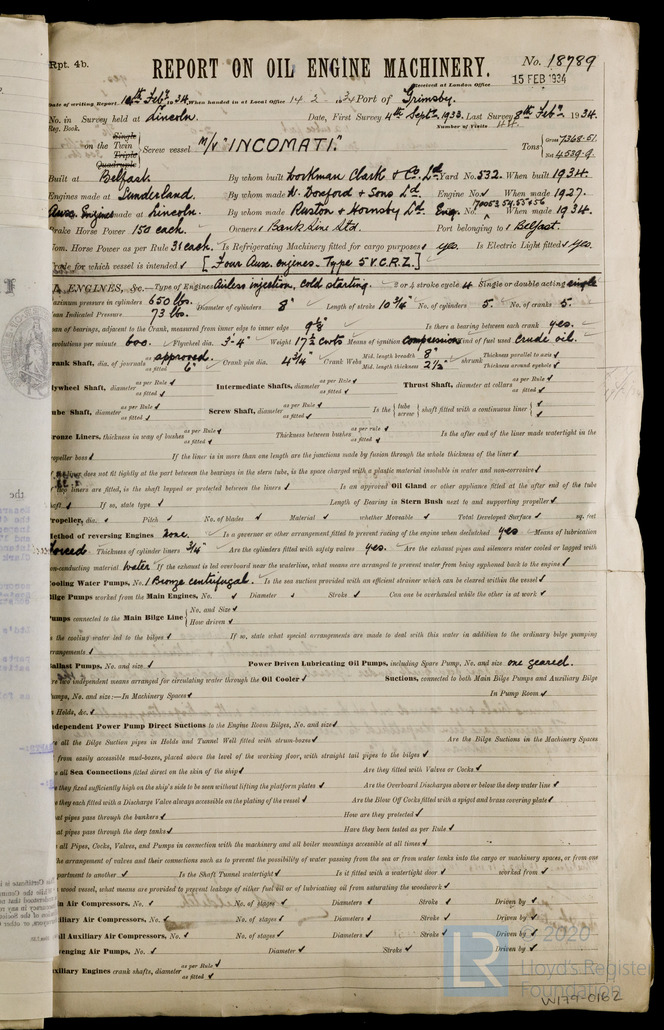 Rpt. 4b.
REPORT ON OIL ENGINE MACHINERY.
No. 18789
Received at London Office
15 FEB 1934
Date of writing Report 10th Feby 1934. When handed in at Local Office 14 - 2 - 34 Port of Grimsby.
No. in Survey held at Lincoln. Date, First Survey 4th Septr. 1933. Last Survey 8th Feby. 1934.
Reg. Book. Number of Visits 44
Single
on the Twin Screw vessel M/V "INCOMATI."
Triple
Quadruple
Tons Gross 7368.51. Net 4539.9.
Built at Belfast. By whom built Workman Clark & Co. Ld. Yard No. 532. When built 1934.
Engines made at Sunderland. By whom made W. Doxford & Sons Ld. Engine No. ✓ When made 1927.
Aux. Engines made at Lincoln. By whom made Ruston & Hornsby Ld. Eng. No. 170053.54.55&56 When made 1934.
Brake Horse Power 150 each. Owners Bank Line Ltd. Port belonging to Belfast.
Nom. Horse Power as per Rule 31 each. Is Refrigerating Machinery fitted for cargo purposes yes. Is Electric Light fitted yes.
Trade for which vessel is intended [Four Aux. engines - Type 5 V.C.R.Z.]
ENGINES, &c. Type of Engines Airless injection, cold starting. 2 or 4 stroke cycle 4 Single or double acting single
Maximum pressure in cylinders 650 lbs. Diameter of cylinders 8" Length of stroke 10 3/4" No. of cylinders 5. No. of cranks 5.
Mean Indicated Pressure 73 lbs.
Span of bearings, adjacent to the Crank, measured from inner edge to inner edge 9 5/8" Is there a bearing between each crank yes.
Revolutions per minute 600. Flywheel dia. 3'-4" Weight 17 1/2 cwts Means of ignition compression Kind of fuel used Crude oil.
Crank Shaft, dia. of journals as approved. as fitted 6" Crank pin dia. 4 3/4" Crank Webs Mid. length breadth 8" Mid. length thickness 2 1/2" shrunk Thickness parallel to axis ✓ Thickness around eyehole ✓
Flywheel Shaft, diameter as per Rule ✓ as fitted ✓ Intermediate Shafts, diameter as per Rule ✓ as fitted ✓ Thrust Shaft, diameter at collars as per Rule ✓ as fitted ✓
Tube Shaft, diameter as per Rule ✓ as fitted ✓ Screw Shaft, diameter as per Rule ✓ as fitted ✓ Is the tube screw shaft fitted with a continuous liner ✓
Bronze Liners, thickness in way of bushes as per Rule ✓ as fitted ✓ Thickness between bushes as per rule ✓ as fitted ✓ Is the after end of the liner made watertight in the
propeller boss ✓ If the liner is in more than one length are the junctions made by fusion through the whole thickness of the liner ✓
If the liner does not fit tightly at the part between the bearings in the stern tube, is the space charged with a plastic material insoluble in water and non-corrosive ✓
If two liners are fitted, is the shaft lapped or protected between the liners ✓ Is an approved Oil Gland or other appliance fitted at the after end of the tube
shaft ✓ If so, state type ✓ Length of Bearing in Stern Bush next to and supporting propeller ✓
Propeller, dia. ✓ Pitch ✓ No. of blades ✓ Material ✓ whether Moveable ✓ Total Developed Surface ✓ sq. feet
Method of reversing Engines none. Is a governor or other arrangement fitted to prevent racing of the engine when declutched yes Means of lubrication
forced Thickness of cylinder liners 3/4" Are the cylinders fitted with safety valves yes. Are the exhaust pipes and silencers water cooled or lagged with
non-conducting material water If the exhaust is led overboard near the waterline, what means are arranged to prevent water from being syphoned back to the engine ✓
Cooling Water Pumps, No. 1 Bronze centrifugal. Is the sea suction provided with an efficient strainer which can be cleared within the vessel ✓
Bilge Pumps worked from the Main Engines, No. ✓ Diameter ✓ Stroke ✓ Can one be overhauled while the other is at work ✓
Pumps connected to the Main Bilge Line No. and Size ✓
How driven ✓
Is the cooling water led to the bilges ✓ If so, state what special arrangements are made to deal with this water in addition to the ordinary bilge pumping
arrangements ✓
Ballast Pumps, No. and size ✓ Power Driven Lubricating Oil Pumps, including Spare Pump, No. and size one geared.
Are two independent means arranged for circulating water through the Oil Cooler ✓ Suctions, connected to both Main Bilge Pumps and Auxiliary Bilge
Pumps, No. and size:—In Machinery Spaces ✓ In Pump Room ✓
In Holds, &c. ✓
Independent Power Pump Direct Suctions to the Engine Room Bilges, No. and size ✓
Are all the Bilge Suction pipes in Holds and Tunnel Well fitted with strum-boxes ✓ Are the Bilge Suctions in the Machinery Spaces
from easily accessible mud-boxes, placed above the level of the working floor, with straight tail pipes to the bilges ✓
Are all Sea Connections fitted direct on the skin of the ship ✓ Are they fitted with Valves or Cocks ✓
Are they fixed sufficiently high on the ship's side to be seen without lifting the platform plates ✓ Are the Overboard Discharges above or below the deep water line ✓
Are they each fitted with a Discharge Valve always accessible on the plating of the vessel ✓ Are the Blow Off Cocks fitted with a spigot and brass covering plate ✓
What pipes pass through the bunkers ✓ How are they protected ✓
What pipes pass through the deep tanks ✓ Have they been tested as per Rule ✓
Are all Pipes, Cocks, Valves, and Pumps in connection with the machinery and all boiler mountings accessible at all times ✓
Is the arrangement of valves and their connections such as to prevent the possibility of water passing from the sea or from water tanks into the cargo or machinery spaces, or from one
compartment to another ✓ Is the Shaft Tunnel watertight ✓ Is it fitted with a watertight door ✓ worked from ✓
If a wood vessel, what means are provided to prevent leakage of either fuel oil or of lubricating oil from saturating the woodwork ✓
Main Air Compressors, No. ✓ No. of stages ✓ Diameters ✓ Stroke ✓ Driven by ✓
Auxiliary Air Compressors, No. ✓ No. of stages ✓ Diameters ✓ Stroke ✓ Driven by ✓
Small Auxiliary Air Compressors, No. ✓ No. of stages ✓ Diameters ✓ Stroke ✓ Driven by ✓
Scavenging Air Pumps, No. ✓ Diameter ✓ Stroke ✓ Driven by ✓
Auxiliary Engines crank shafts, diameter as per Rule ✓ as fitted ✓
© 2020
LR
Lloyd's Register
Foundation
W179-0162